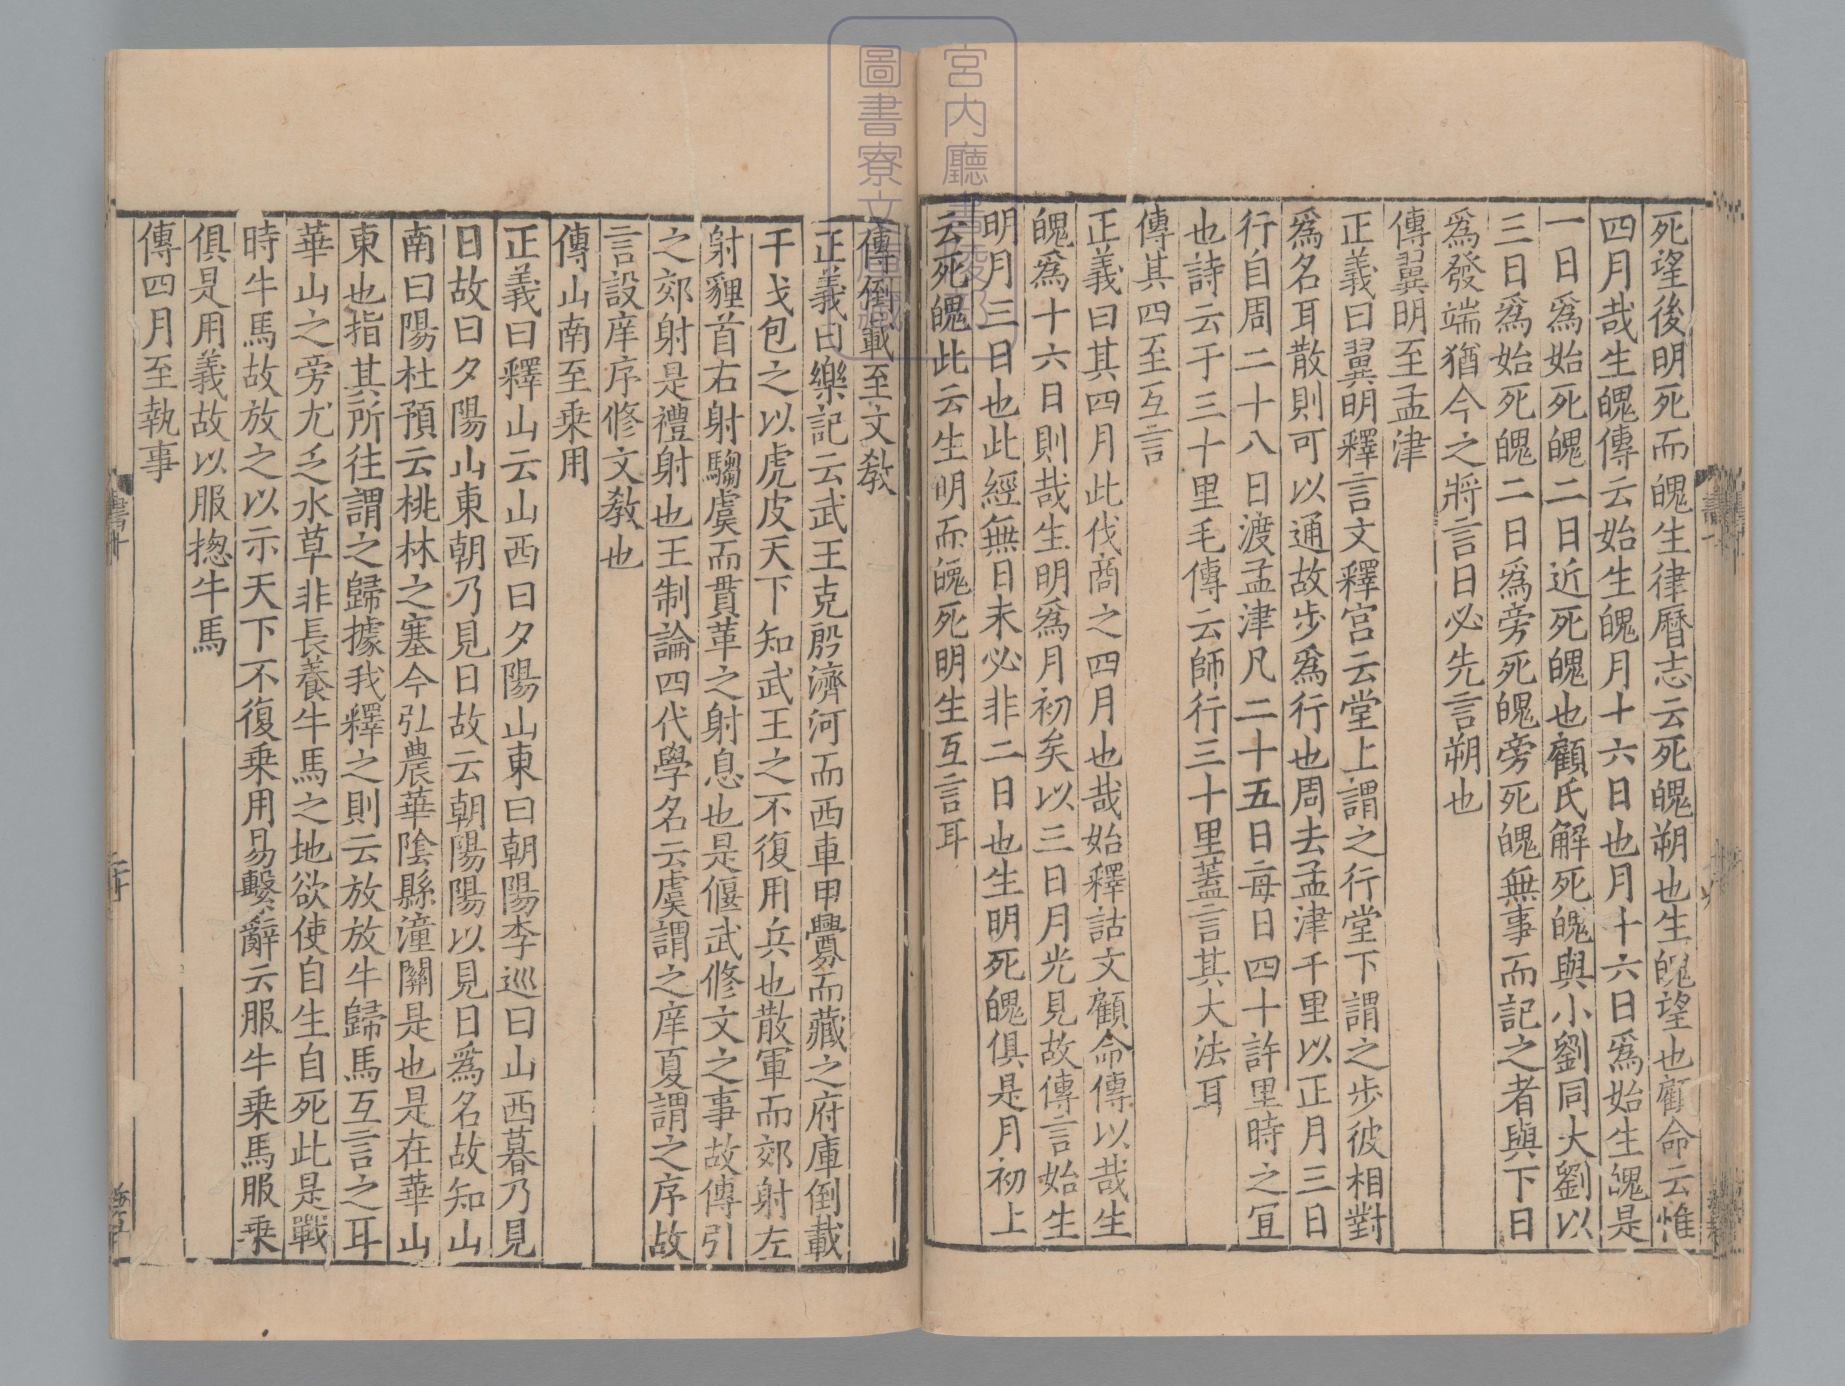 死望後明死而魄生律曆志云死魄朔也生魄望也顧命云惟
四月哉生魄傳云始生魄月十六日也月十六日爲始生魄是
一日爲始死魄二日近死魄也顧氏解死魄與小劉同大劉以
三日爲始死魄二日爲旁死魄旁死魄無事而記之者與下日
爲發端猶今之將言日必先言朔也
傳翼明至孟津
正義曰翼明釋言文釋宮云堂上謂之行堂下謂之步彼相對
爲名耳散則可以通故步爲行也周去孟津千里以正月三日
行自周二十八日渡孟津凡二十五日每日四十許里時之宜
也詩云于三十里毛傳云師行三十里蓋言其大法耳
傳其四至互言
正義曰其四月此伐商之四月也哉始釋詁文顧命傳以哉生
魄爲十六日則哉生明爲月初矣以三日月光見故傳言始生
明月三日也此經無日未必非二日也生明死魄俱是月初上
云死魄此云生明而魄死明生互言耳
傳倒載至文敎
正義曰樂記云武王克殷濟河而西車甲釁而藏之府庫倒載
干戈包之以虎皮天下知武王之不復用兵也散軍而郊射左
射貍首右射騶虞而貫革之射息也是偃武修文之事故傳引
之郊射是禮射也王制論四代學名云虞謂之庠夏謂之序故
言設庠序修文敎也
傳山南至乗用
正義曰釋山云山西曰夕陽山東曰朝陽李巡曰山西暮乃見
日故曰夕陽山東朝乃見日故云朝陽陽以見日爲名故知山
南曰陽杜預云桃林之塞今弘農華陰縣潼關是也是在華山
東也指其所往謂之歸據我釋之則云放放牛歸馬互言之耳
華山之旁尤乏水草非長養牛馬之地欲使自生自死此是戰
時牛馬故放之以示天下不復乗用易繫辭云服牛乗馬服乗
俱是用義故以服揔牛馬
傳四月至執事
宮内廳書陵部
圖書寮文庫